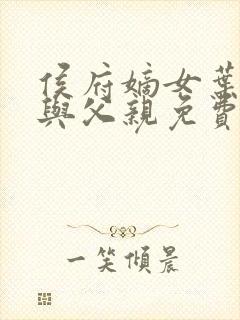 侯府嫡女葉
與父親免費
一笑傾晨